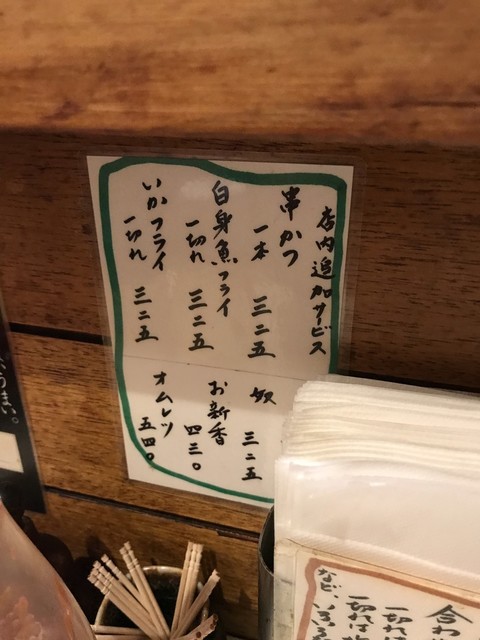 店内追加サービス
串かつ
一本 三二五
白身魚フライ
一切れ 三二五
いかフライ
一切れ 三二五
奴
三二五
お新香
四三〇
オムレツ
五四〇
うまい。
合わ
一切れ
一切れば
など、いろ